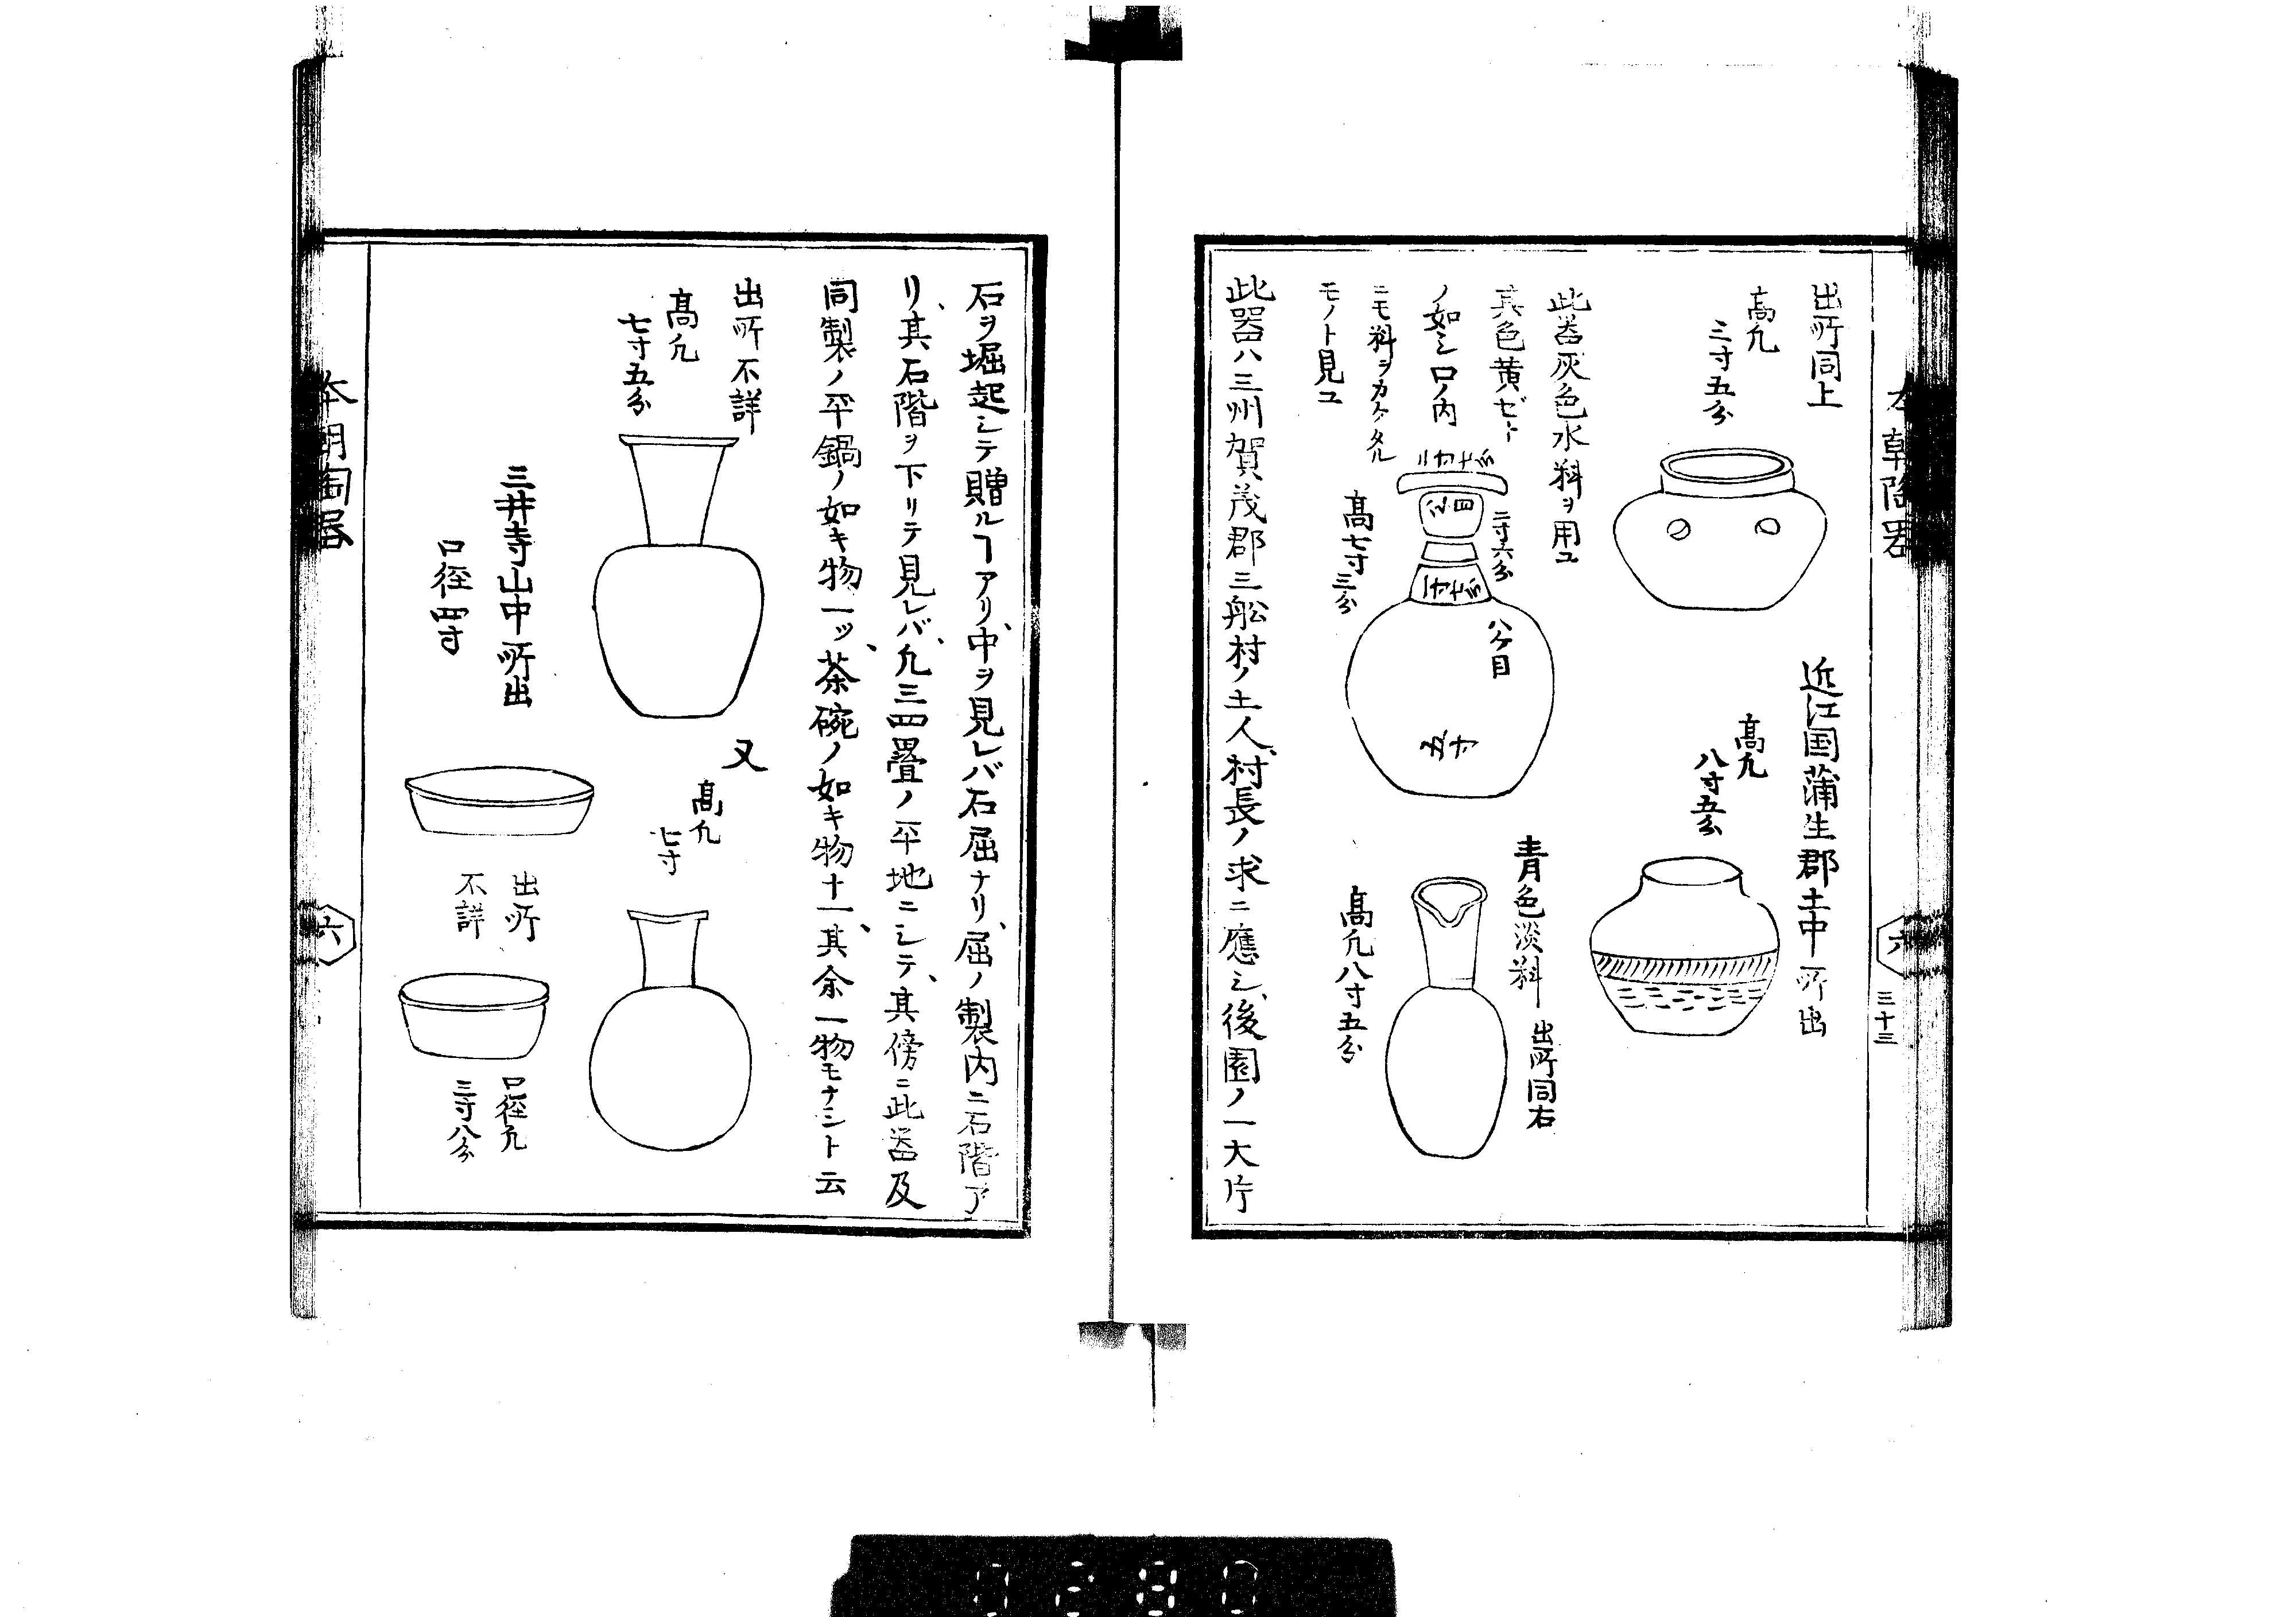 本朝陶器
六
三十三
出所同上
高凢
三寸五分
近江国蒲生郡土中所出
高凢
八寸五分
此器灰色水料ヲ用ユ
其色黄ゼト
ノ如シ口ノ内
ニモ料ヲカケタル
モノト見ユ
二寸六分
八ケ目
高七寸三分
五寸
青色淡料
出所同右
高凢八寸五分
此器ハ三州賀茂郡三船村ノ土人、村長ノ求ニ應シ、後園ノ一大片
石ヲ堀起シテ贈ルヿアリ、中ヲ見レバ石屈ナリ、屈ノ製内ニ石階ア
リ、其石階ヲ下リテ見レバ、凢三四疊ノ平地ニシテ、其傍ニ此器及
同製ノ平鍋ノ如キ物一ッ、茶碗ノ如キ物十一、其余一物モナシト云
出所不詳
高凢
七寸五分
又
高凢
七寸
三井寺山中所出
口径四寸
出所
不詳
口径凢
三寸八分
本朝陶器
六